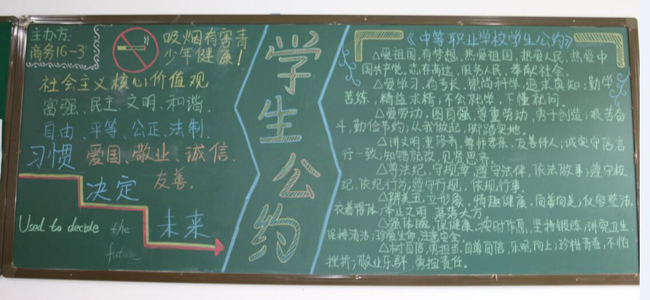 主办方:
商务16-3
吸烟有害青
少年健康!
社会主义核心价值观
富强、民主、文明、和谐、
自由、平等、公正、法制、
爱国、敬业、诚信、
友善。
习惯
决定
未来
Used to decide the
future
学生公约
《中等职业学校学生公约》
△爱祖国,有梦想。热爱祖国,热爱人民,热爱中
国共产党,志存高远,服务人民,奉献社会。
△爱学习,有专长。崇尚科学,追求真知;勤学
苦练,精益求精;不会就学,不懂就问。
△爱劳动,图自强。尊重劳动,勇于创造;艰苦奋
斗,勤俭节约;从我做起,脚踏实地。
△讲文明,重修养。尊师孝亲,友善待人;诚实守信,言
行一致;知错就改,见贤思齐。
△遵法纪,守规章。遵守法律,依法做事;遵守校
纪,依纪行为;遵守行规,依规行事。
△辨美丑,立形象。情趣健康,向善向美;仪容整洁,
衣着得体;举止文明,落落大方。
△强体魄,保健康。按时作息,坚持锻炼;讲究卫生,
保持清洁;珍爱生命,注意安全。
△树自信,勇担当。自尊自信,乐观向上;珍惜青春,不怕
挫折;敬业乐群,勇担责任。